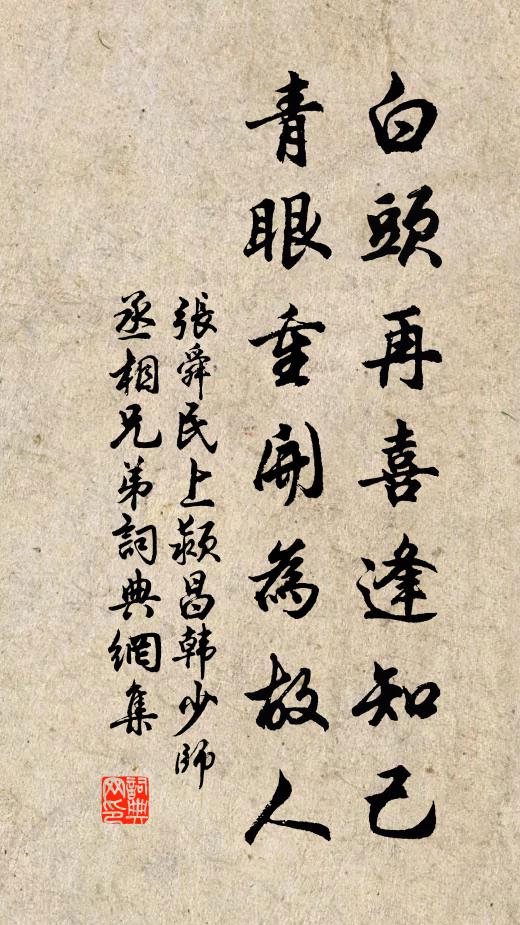 白頭再喜逢知己
青眼重開為故人
張舜民上潁昌韓少師
丞相兄弟詞典網集
詞典
网印